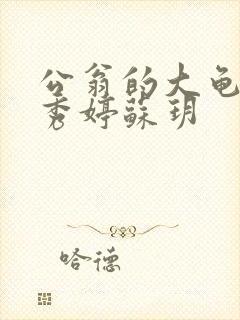 公翁的大龟
秀婷蘇玥
哈德